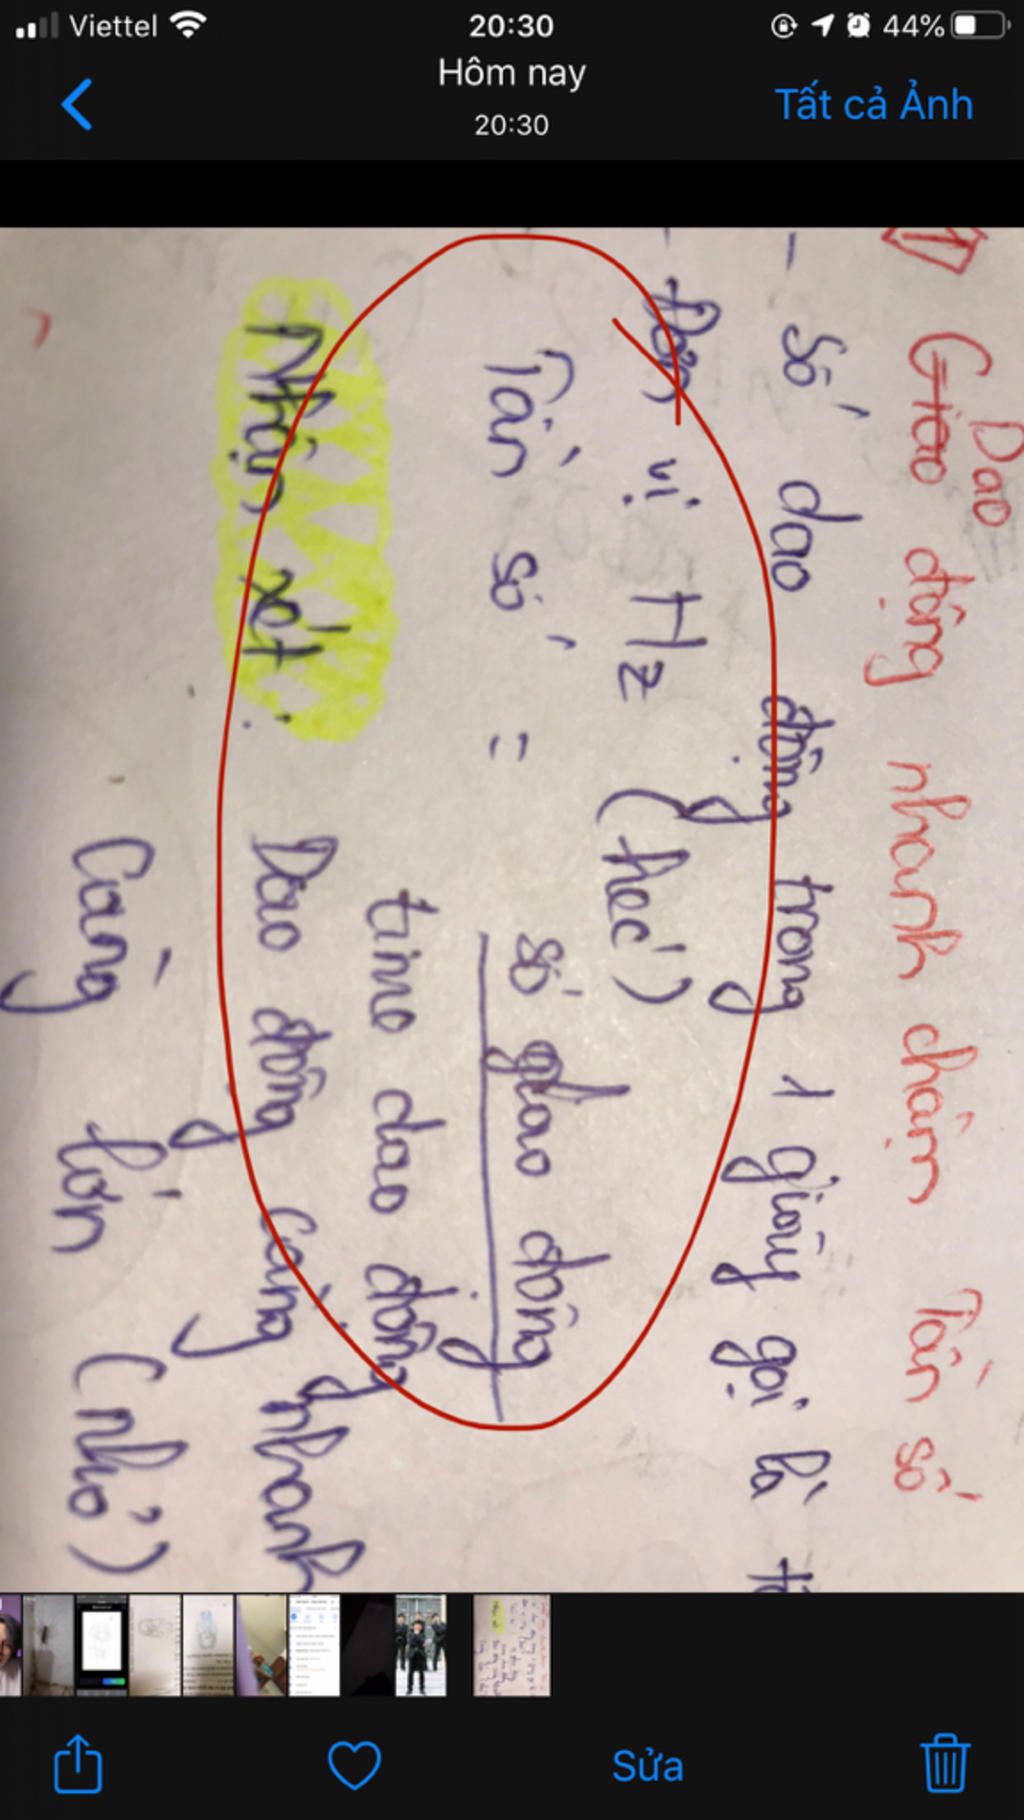 Viettel
20:30
44%
Hôm nay
20:30
Tất cả Ảnh
1 Giao động nhanh chậm Tần số
Dao
- Số dao động trong 1 giây gọi là
- Đơn vị Hz (héc)
Tần số = số giao động
time dao động
Nhận xét: Dao động càng nhanh
càng lớn (nhỏ)
Sửa